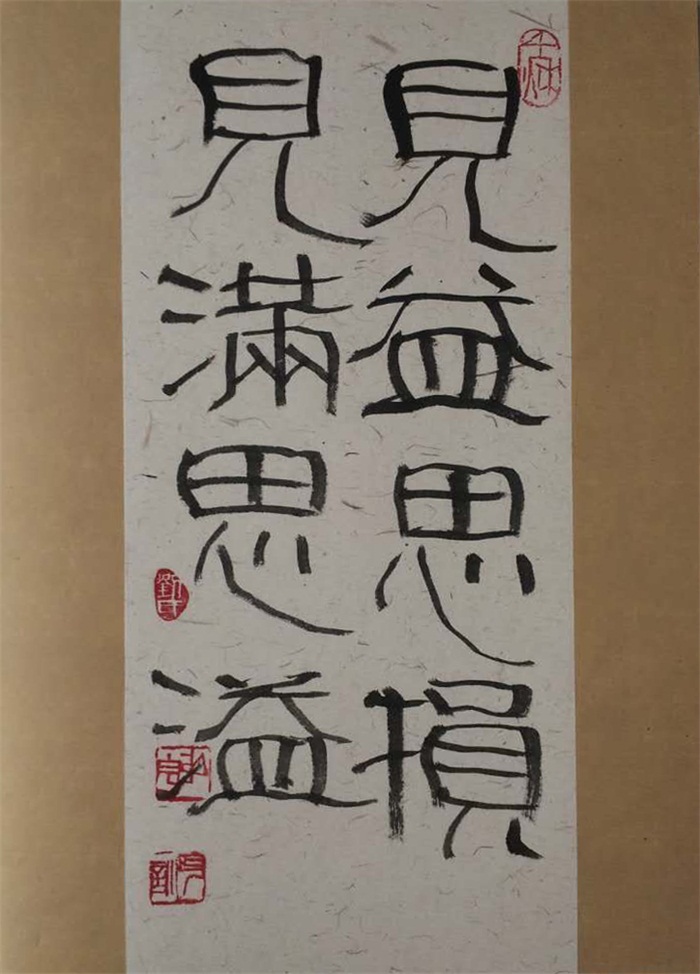 見益思損
見滿思溢
劉氏